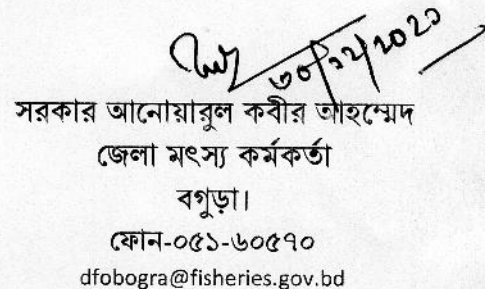 ৩০/১২/২০২১
সরকার আনোয়ারুল কবীর আহম্মেদ
জেলা মৎস্য কর্মকর্তা
বগুড়া।
ফোন-০৫১-৬০৫৭০
dfobogra@fisheries.gov.bd